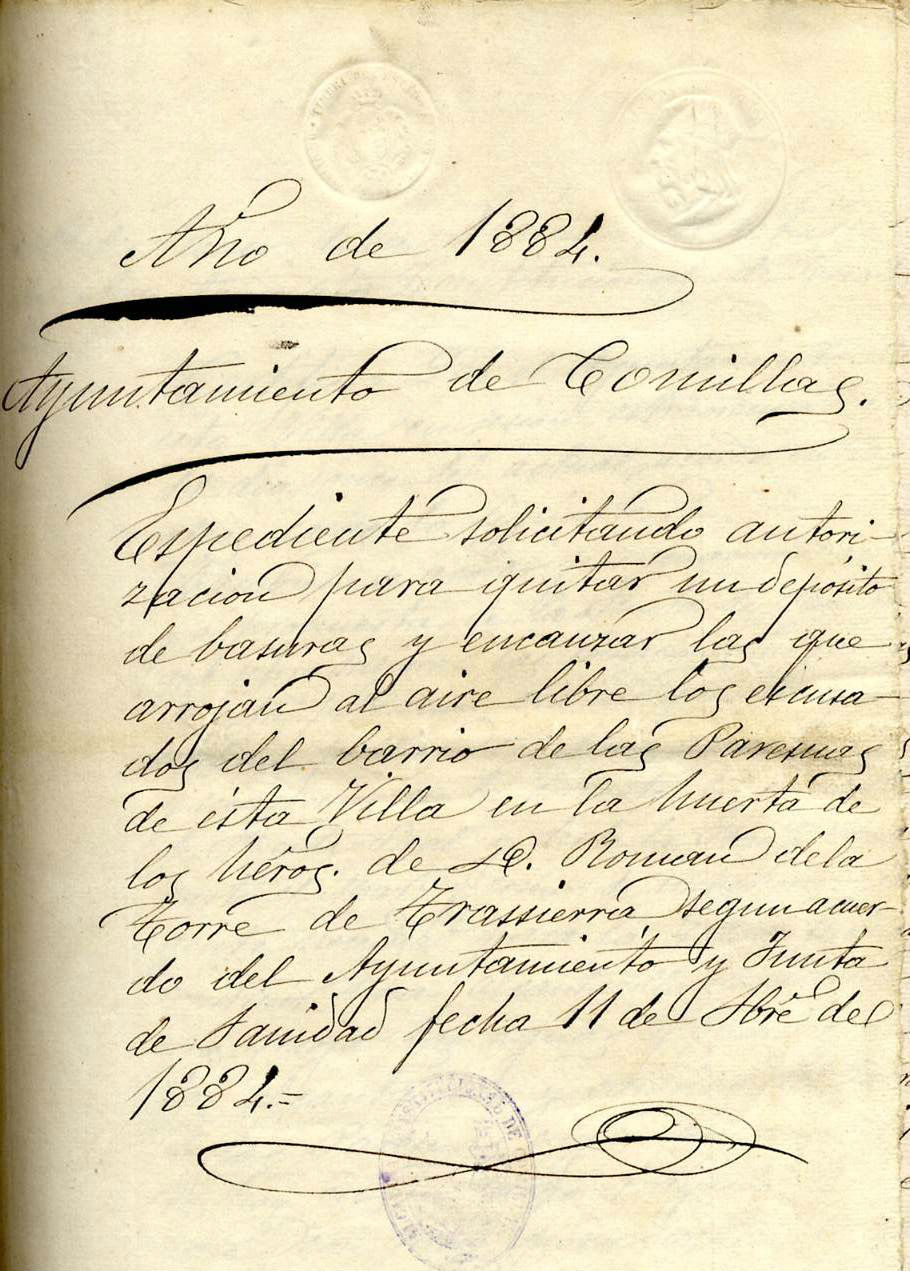 Año de 1884.
Ayuntamiento de Comillas.
Espediente solicitando autori-
zacion para quitar un depósito
de basuras y encauzar las que
arrojan al aire libre los escusa-
dos del barrio de las
de ésta Villa en la huerta de
los héros. de D. Roman de la
Torre de Trassierra, segun acuer-
do del Ayuntamiento y Junta
de Sanidad fecha 11 de de
1884.=